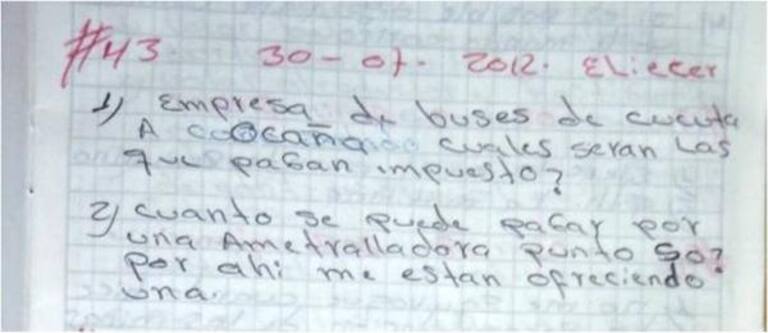 #43. 30-07-2012. Eliecer
1) Empresa de buses de cucuta
A Ocaña cuales seran Las
que paGan impuesto?
2) cuanto se puede paGar por
una Ametralladora punto 50?
por ahi me estan ofreciendo
una.